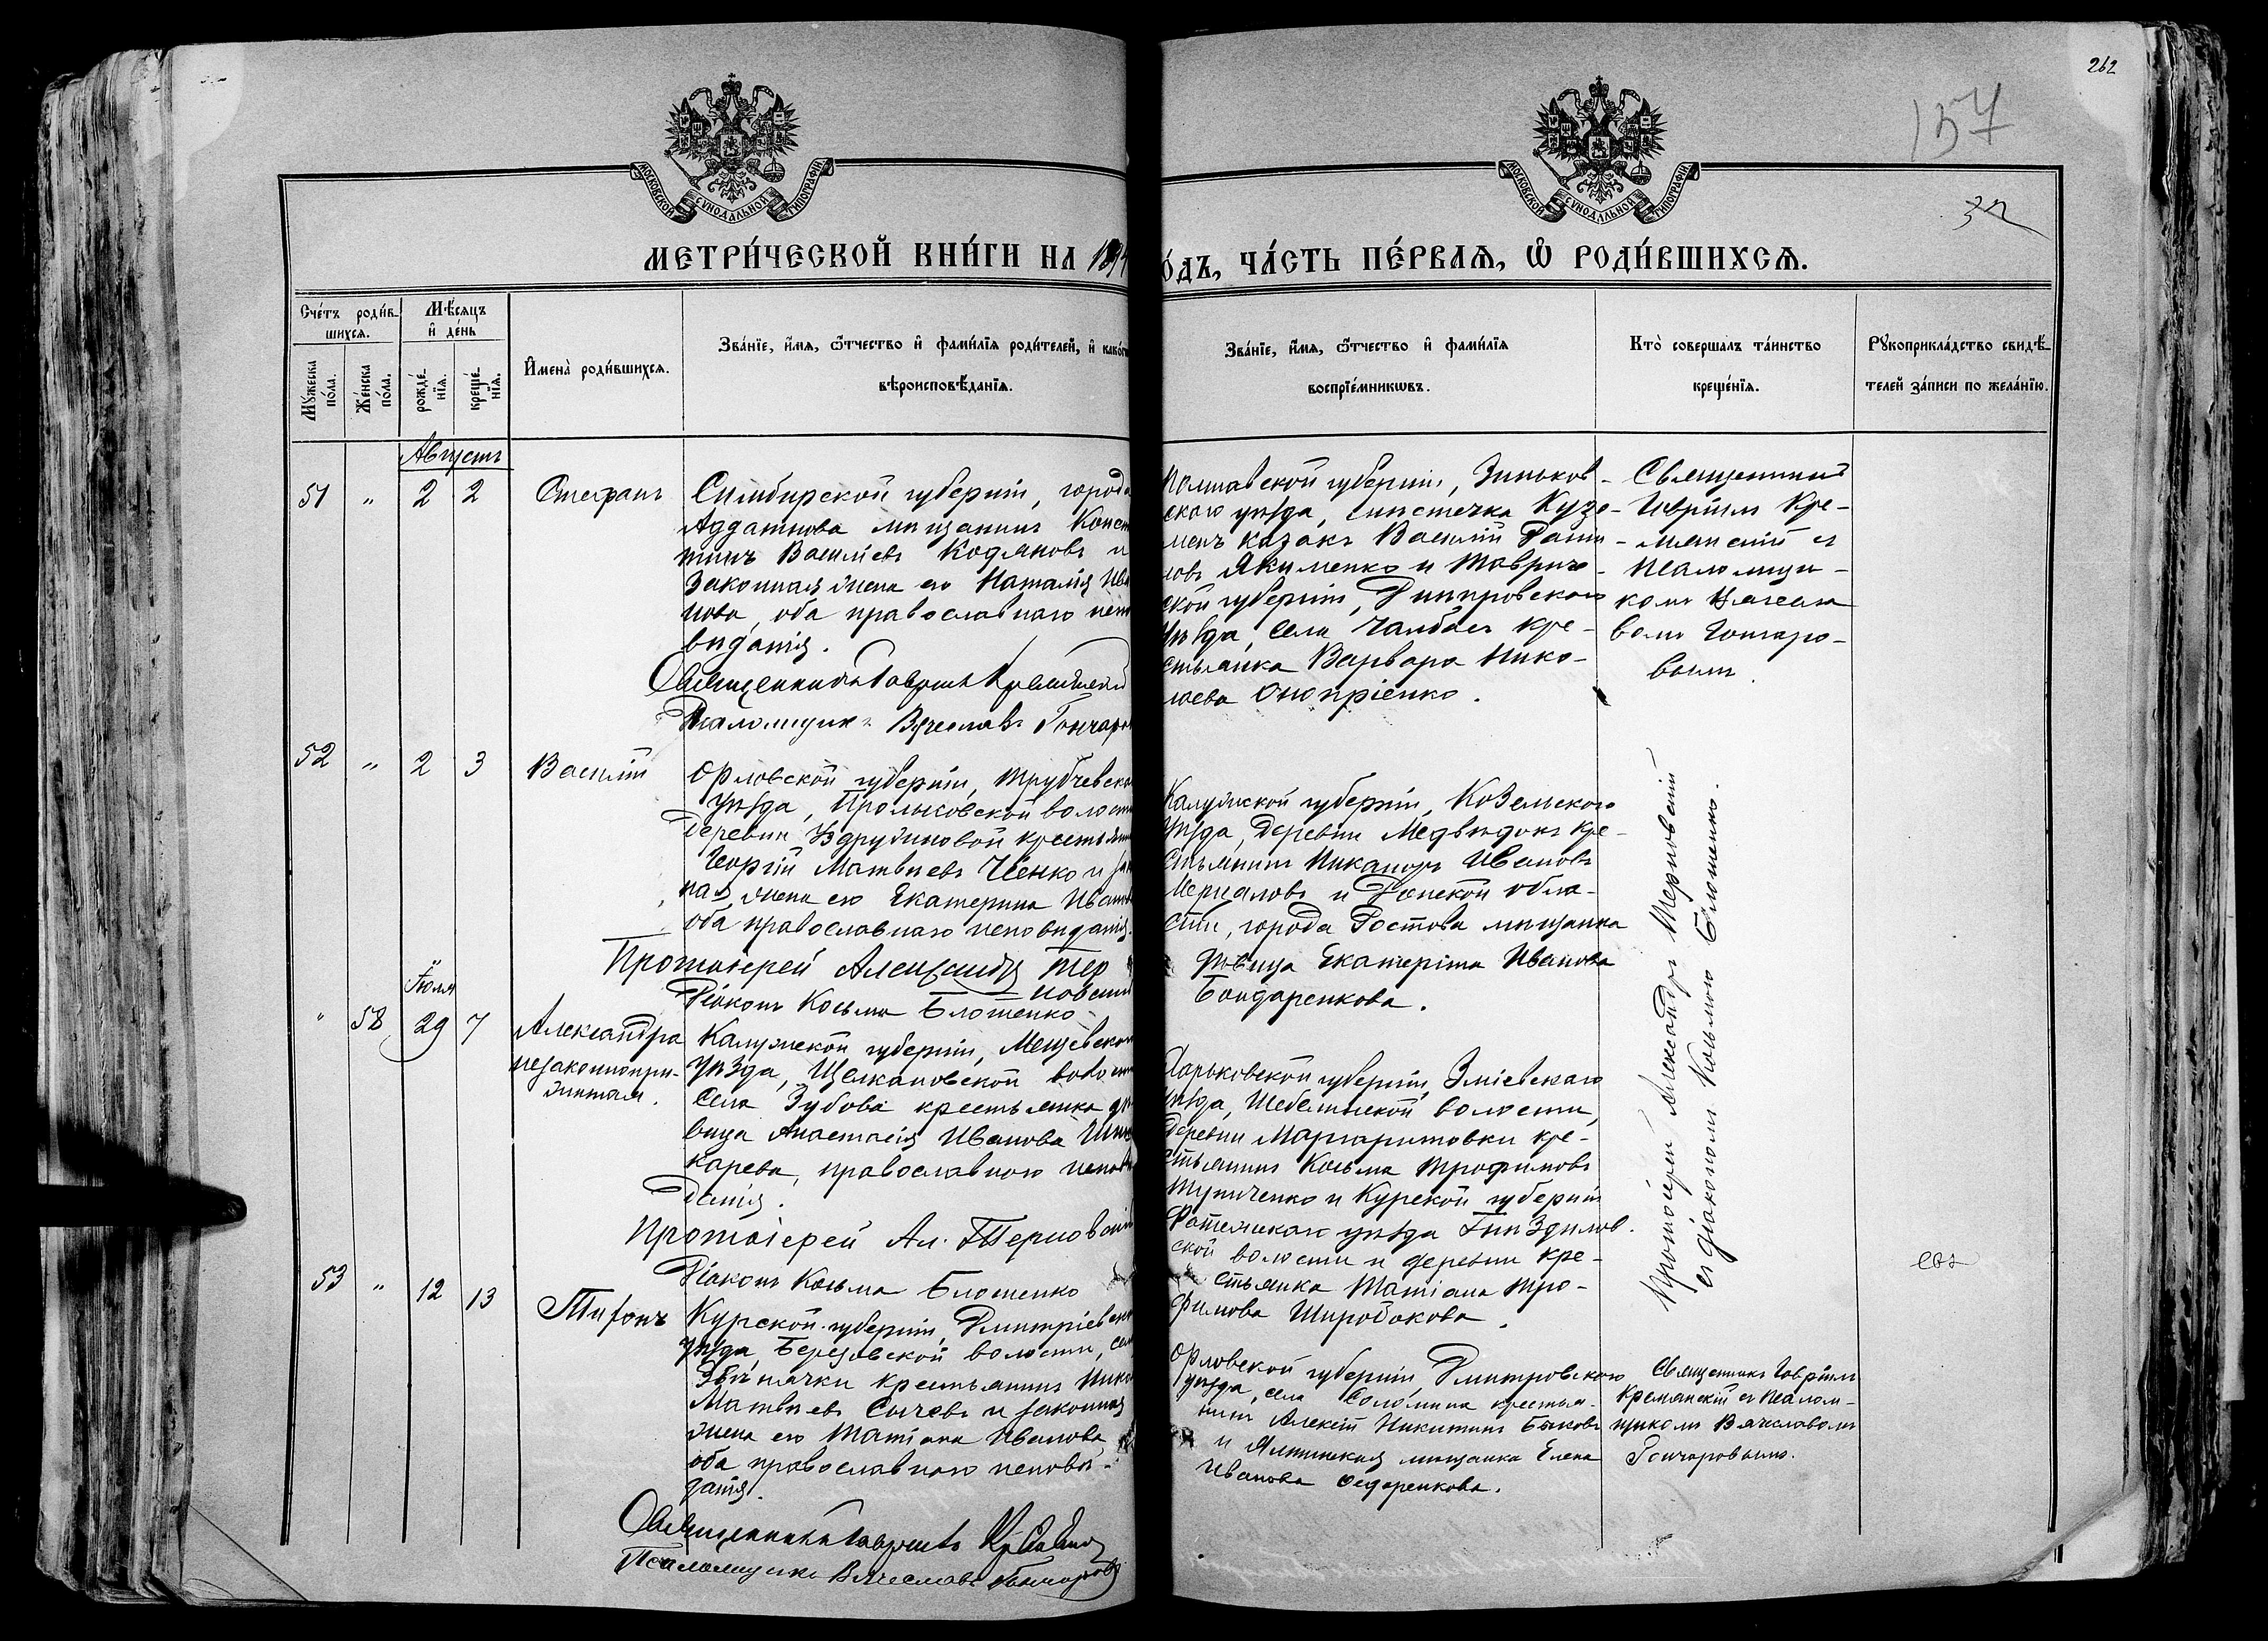 262
157
32
МОСКОВСКОЙ СѴНОДАЛЬНОЙ ТИПОГРАФІИ
МОСКОВСКОЙ СѴНОДАЛЬНОЙ ТИПОГРАФІИ
МЕТРИ́ЧЕСКОЙ КНИ́ГИ НА 1894
О́ДЪ, ЧА́СТЬ ПЕ́РВАѦ, Ѡ҆ РОДИ́ВШИХСѦ.
Сче́тъ роди́в-
шихсѧ.
Мꙋжеска по́ла.
Же́нска по́ла.
Мѣ́сѧцъ
и҆ де́нь
рожде́-
нїѧ.
креще́-
нїѧ.
И҆мена̀ роди́вшихсѧ.
Зва́нїе, и҆́мѧ, ѻ҆́тчество и҆ фами́лїѧ роди́телей, и҆ како́г
вѣроисповѣ́данїѧ.
Зва́нїе, и҆́мѧ, ѻ҆́тчество и҆ фами́лїѧ
воспрїе́мникѡвъ.
Кто̀ совершалъ та́инство
креще́нїѧ.
Рꙋкоприкла́дство свидѣ́-
телей за́писи по жела́нїю.
Августъ
51 " 2 2 Стефанъ
Симбирской губерніи, города
Ардатова мѣщанинъ Конст
тинъ Васильевъ Кодяковъ и
законная жена его Наталія Ива
нова, оба православнаго испо
вѣданія.
Священникъ Гавріилъ Крамянскій
Псаломщикъ Вячеславъ Гончаров
Полтавской губерніи, Зиньков-
скаго уѣзда, мѣстечка Кузе-
менъ казакъ Василій Дани-
ловъ Якименко и Тавриче-
ской губерніи, Днѣпровскаго
уѣзда, села Чалбасъ кре-
стьянка Варвара Нико-
лаева Оноприенко.
Священникъ
Гавріилъ Кре-
мянскій съ
псаломщи-
комъ Вячесла-
вомъ Гончаро-
вымъ.
52 " 2 3 Василій
Орловской губерніи, Трубчевска
уѣзда,
деревни
Георгій Матвѣевъ и за
ная жена его Екатерина Иванов
оба православнаго исповѣданія.
Протоіерей Александръ Тер
новскій
Діаконъ Косьма Блошенко
Калужской губерніи, Козельскаго
уѣзда, деревни Медвѣдокъ кре-
стьянинъ Никаноръ Ивановъ
Мерцаловъ и Донской обла-
сти, города Ростова мѣщанка
дѣвица Екатерина Иванова
Бондаренкова.
Протоіерей Александръ Терновскій
съ діакономъ Косьмою Блошенко.
Іюля
" 58 29 7 Александра
незаконнори-
жденная.
Калужской губерніи, Мещевска
уѣзда, Щелкановской волост
села Зубова крестьянка дѣ
вица Анастасія Иванова
карева, православнаго исповѣ
данія.
Протоіерей Ал. Терновскій
Діаконъ Косьма Блошенко
Харьковской губерніи, Зміевскаго
уѣзда, Шебелинской волости,
деревни Маргаритовки кре-
стьянинъ Косьма Трофимовъ
Тупиченко и Курской губерніи
Фатежскаго уѣзда Гнѣздилов-
ской волости и деревни кре-
стьянка Татіана Тро-
фимова Широбокова.
53 " 12 13 Тихонъ
Курской губерніи, Дмитріевска
уѣзда, Березовской волости, сел
Звѣнячки крестьянинъ Нико
Матвѣевъ Сычевъ и законная
жена его Татіана Иванова
оба православнаго исповѣ-
данія.
Священникъ Гавріилъ
Псаломщикъ Вячеславъ Гончаровъ
Орловской губерніи, Дмитровскаго
уѣзда, села Соломина крестья-
нинъ Алексѣй Никитинъ Быковъ
и Ялтинская мѣщанка Елена
Иванова Федоренкова.
Священникъ Гавріилъ
Кремянскій съ псалом-
щикомъ Вячеславомъ
Гончаровымъ.